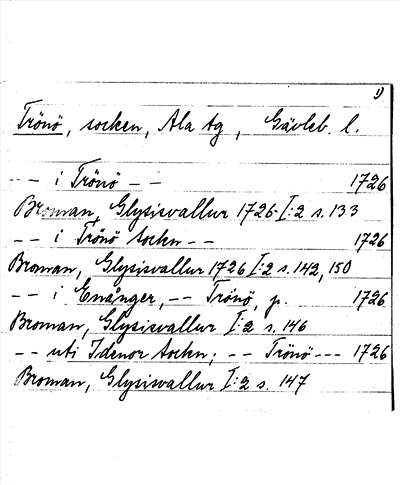 1)
Trönö, socken, Ala tg, Gävleb. l.
-- i Trönö -- 1726
Broman, Glysisvallur 1726 I:2 s. 133
-- i Trönö Sockn -- 1726
Broman, Glysisvallur 1726 I:2 s. 142, 150
-- i Enånger, -- Trönö, p. 1726
Broman, Glysisvallur I:2 s. 146
-- uti Idenor Sockn; -- Trönö --- 1726
Broman, Glysisvallur I:2 s. 147